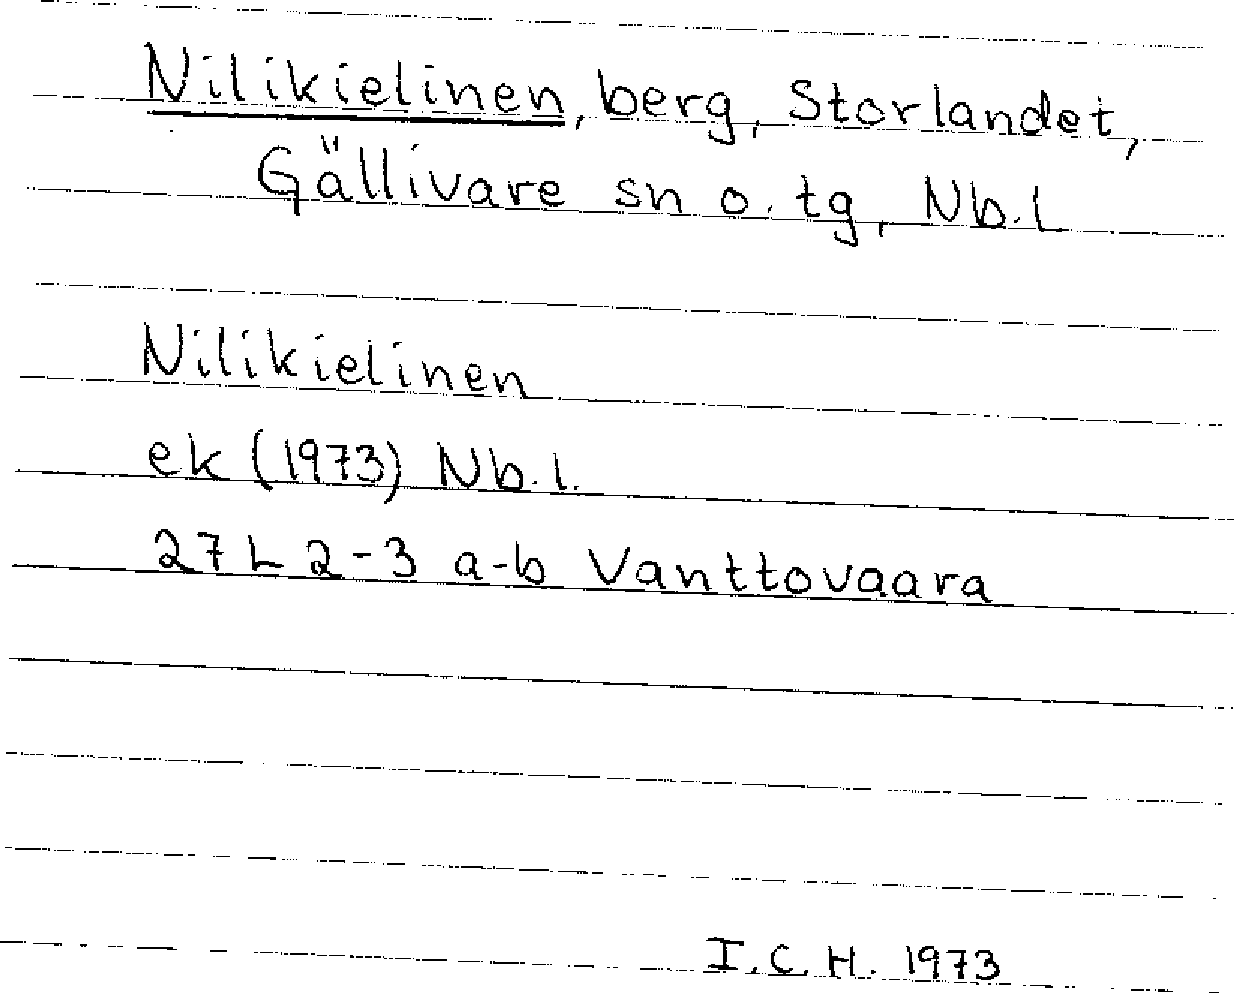 Nilikielinen, berg, Storlandet,
Gällivare sn o. tg, Nb.L
Nilikielinen
ek (1973) Nb.l.
27L 2-3 a-b Vanttovaara
I.C.H. 1973